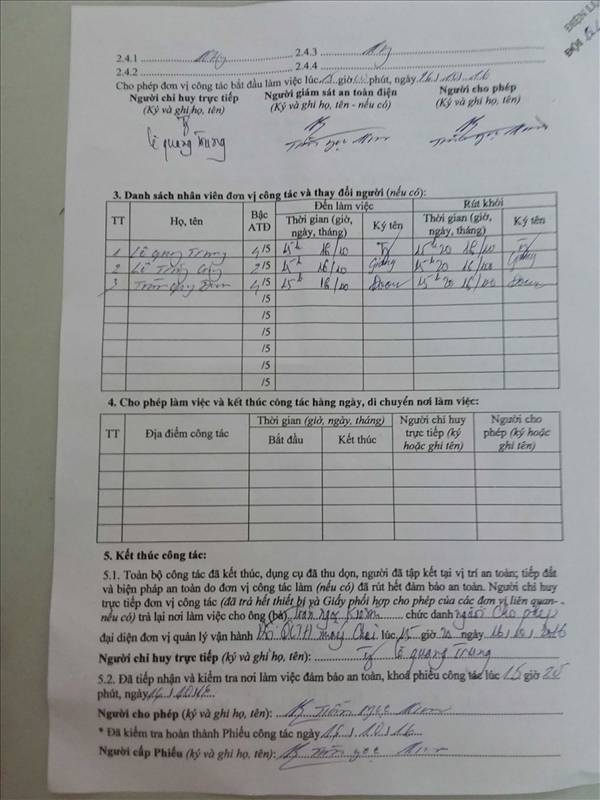 ĐIỆN L
ĐỘI
2.4.1 2.4.3
2.4.2 2.4.4
Cho phép đơn vị công tác bắt đầu làm việc lúc 15 giờ 00 phút, ngày 16/10/16
Người chỉ huy trực tiếp Người giám sát an toàn điện Người cho phép
(Ký và ghi họ, tên) (Ký và ghi họ, tên - nếu có) (Ký và ghi họ, tên)
Lê Quang Trung Trần Ngọc Trần Ngọc
3. Danh sách nhân viên đơn vị công tác và thay đổi người (nếu có):
TT Họ, tên Bậc ATĐ Đến làm việc Rút khỏi
Thời gian (giờ, ngày, tháng) Ký tên Thời gian (giờ, ngày, tháng) Ký tên
1 Lê Quang Trung 4/5 15h 16/10 15h20 16/10
2 Lê 2/5 15h 16/10 15h20 16/10
3 Trần 4/5 15h 16/10 15h20 16/10
/5
/5
/5
/5
/5
/5
4. Cho phép làm việc và kết thúc công tác hàng ngày, di chuyển nơi làm việc:
TT Địa điểm công tác Thời gian (giờ, ngày, tháng) Người chỉ huy trực tiếp (ký hoặc ghi tên) Người cho phép (ký hoặc ghi tên)
Bắt đầu Kết thúc
5. Kết thúc công tác:
5.1. Toàn bộ công tác đã kết thúc, dụng cụ đã thu dọn, người đã tập kết tại vị trí an toàn; tiếp đất
và biện pháp an toàn do đơn vị công tác làm (nếu có) đã rút hết đảm bảo an toàn. Người chỉ huy
trực tiếp đơn vị công tác (đã trả hết thiết bị và Giấy phối hợp cho phép của các đơn vị liên quan-
nếu có) trả lại nơi làm việc cho ông (bà) Trần Ngọc chức danh người cho phép
đại diện đơn vị quản lý vận hành lúc 15 giờ 20 ngày 16/10/2016
Người chỉ huy trực tiếp (ký và ghi họ, tên): Lê Quang Trung
5.2. Đã tiếp nhận và kiểm tra nơi làm việc đảm bảo an toàn, khoá phiếu công tác lúc 15 giờ 25
phút, ngày
Người cho phép (ký và ghi họ, tên): Trần Ngọc
* Đã kiểm tra hoàn thành Phiếu công tác ngày
Người cấp Phiếu (ký và ghi họ, tên): Trần Ngọc